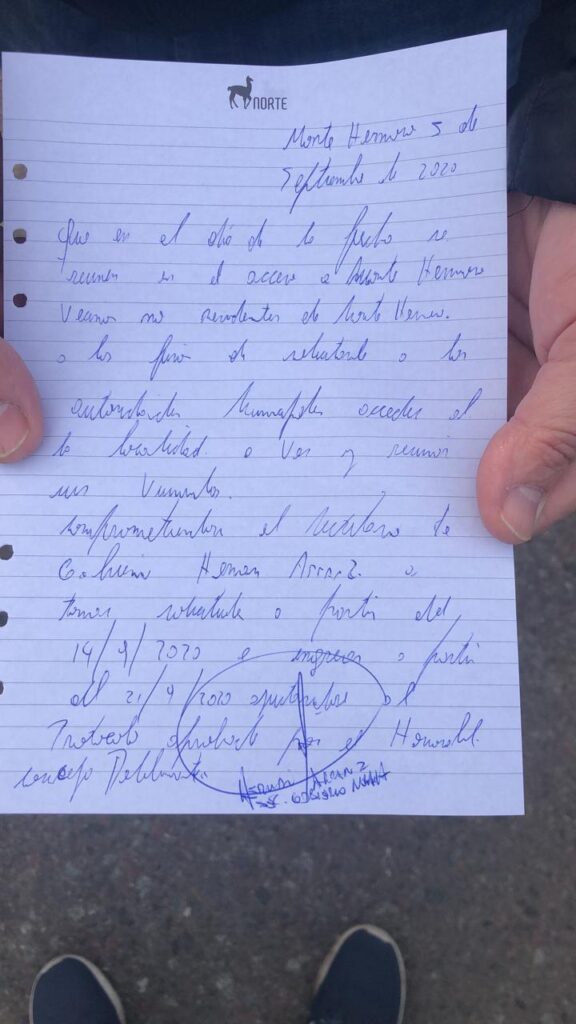 NORTE
Monte Hermoso 5 de
Septiembre de 2020
Que en el día de la fecha se
reunen en el acceso a Monte Hermoso
Vecinos no residentes de Monte Hermoso.
a los fines de solicitarle a los
autoridades Municipales acceder al
la localidad. a Ver y reunir
sus Viviendas.
comprometiendose el Secretario de
Gobierno Hernan Arranz. a
tomar solicitudes a partir del
14/9/2020 e ingresar a partir
del 21/9/2020 al
Protocolo aprobado por el Honorable.
concejo Deliberante.
HERNAN ARRANZ
GOBIERNO